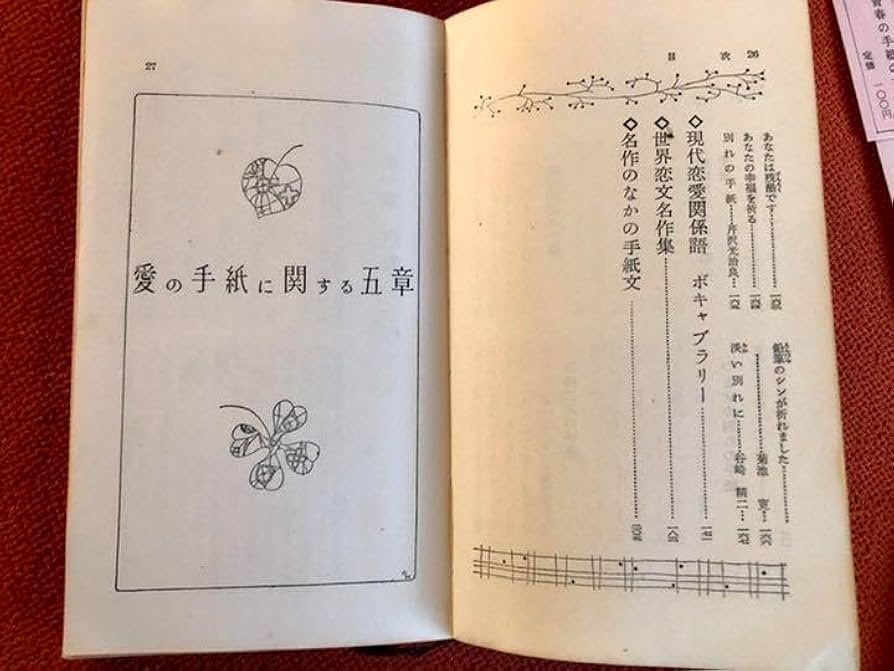 青春の手紙の
定価 一〇〇円
目 次 26
あなたは残酷です
あなたの幸福を祈る
別れの手紙……芹沢光治良…
鉛筆のシンが折れました
……菊池 寛…
淡い別れに…谷崎精二…
◇現代恋愛関係語 ボキャブラリー……
◇世界恋文名作集……
◇名作のなかの手紙文……
27
愛の手紙に関する五章